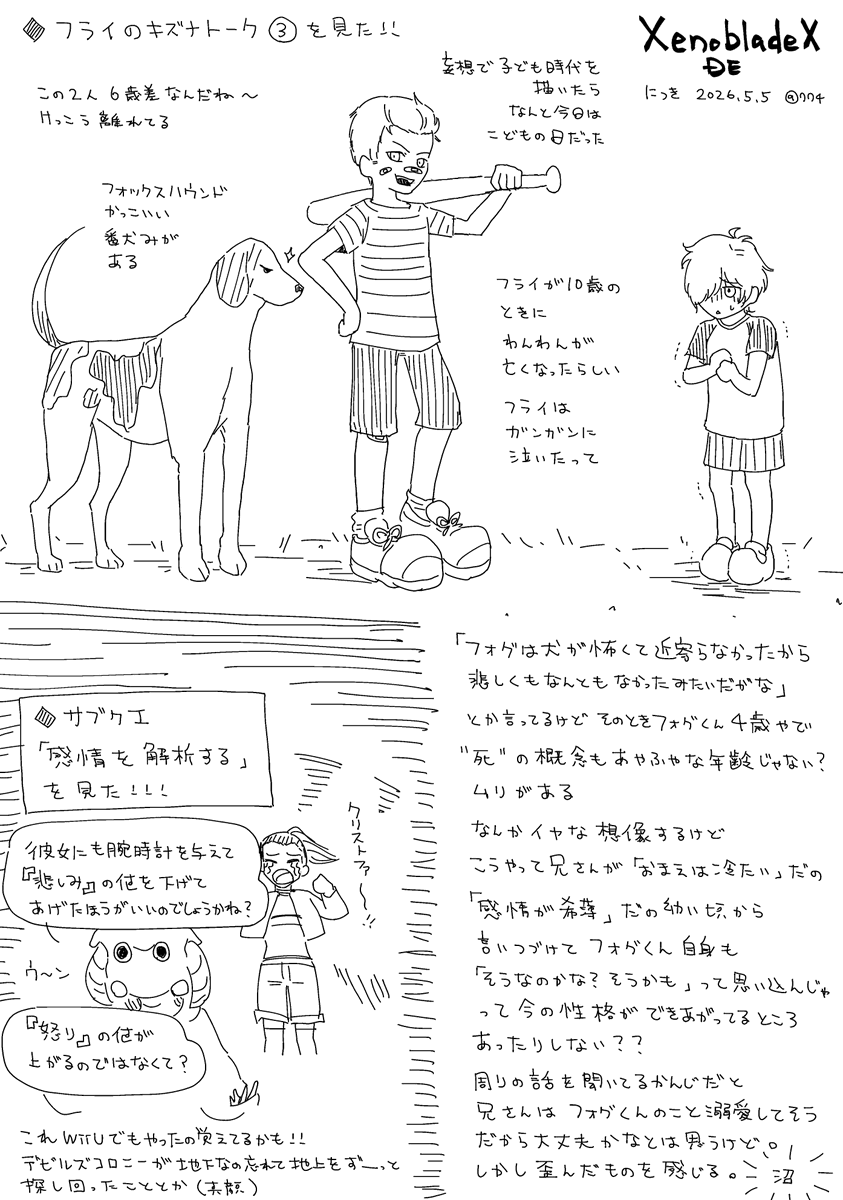 フライのキズナトーク③を見た!!
XenobladeX
DE
にっき 2026.5.5 @774
この2人 6歳差なんだね〜
けっこう離れてる
妄想で子ども時代を
描いたら
なんと今日は
こどもの日だった
フォックスハウンド
かっこいい
番犬みが
ある
フライが10歳の
ときに
わんわんが
亡くなったらしい
フライは
ガンガンに
泣いたって
「フォグは犬が怖くて近寄らなかったから
悲しくもなんともなかったみたいだがな」
とか言ってるけど そのときフォグくん4歳やで
"死"の概念もあやふやな年齢じゃない?
ムリがある
なんかイヤな想像するけど
こうやって兄さんが「おまえは冷たい」だの
「感情が希薄」だの幼い頃から
言いつづけて フォグくん自身も
「そうなのかな?そうかも」って思い込んじゃ
って今の性格ができあがってるところ
あったりしない??
周りの話を聞いてるかんじだと
兄さんは フォグくんのこと溺愛してそう
だから大丈夫かなとは思うけど。
しかし歪んだものを感じる。
沼
サブクエ
「感情を解析する」
を見た!!!
クリストファ〜!!
彼女にも腕時計を与えて
『悲しみ』の値を下げて
あげたほうがいいのでしょうかね?
ウ〜ン
『怒り』の値が
上がるのではなくて?
これWiiUでもやったの覚えてるかも!!
デビルズコロニーが地下なの忘れて地上をず〜っと
探し回ったこととか(笑顔)